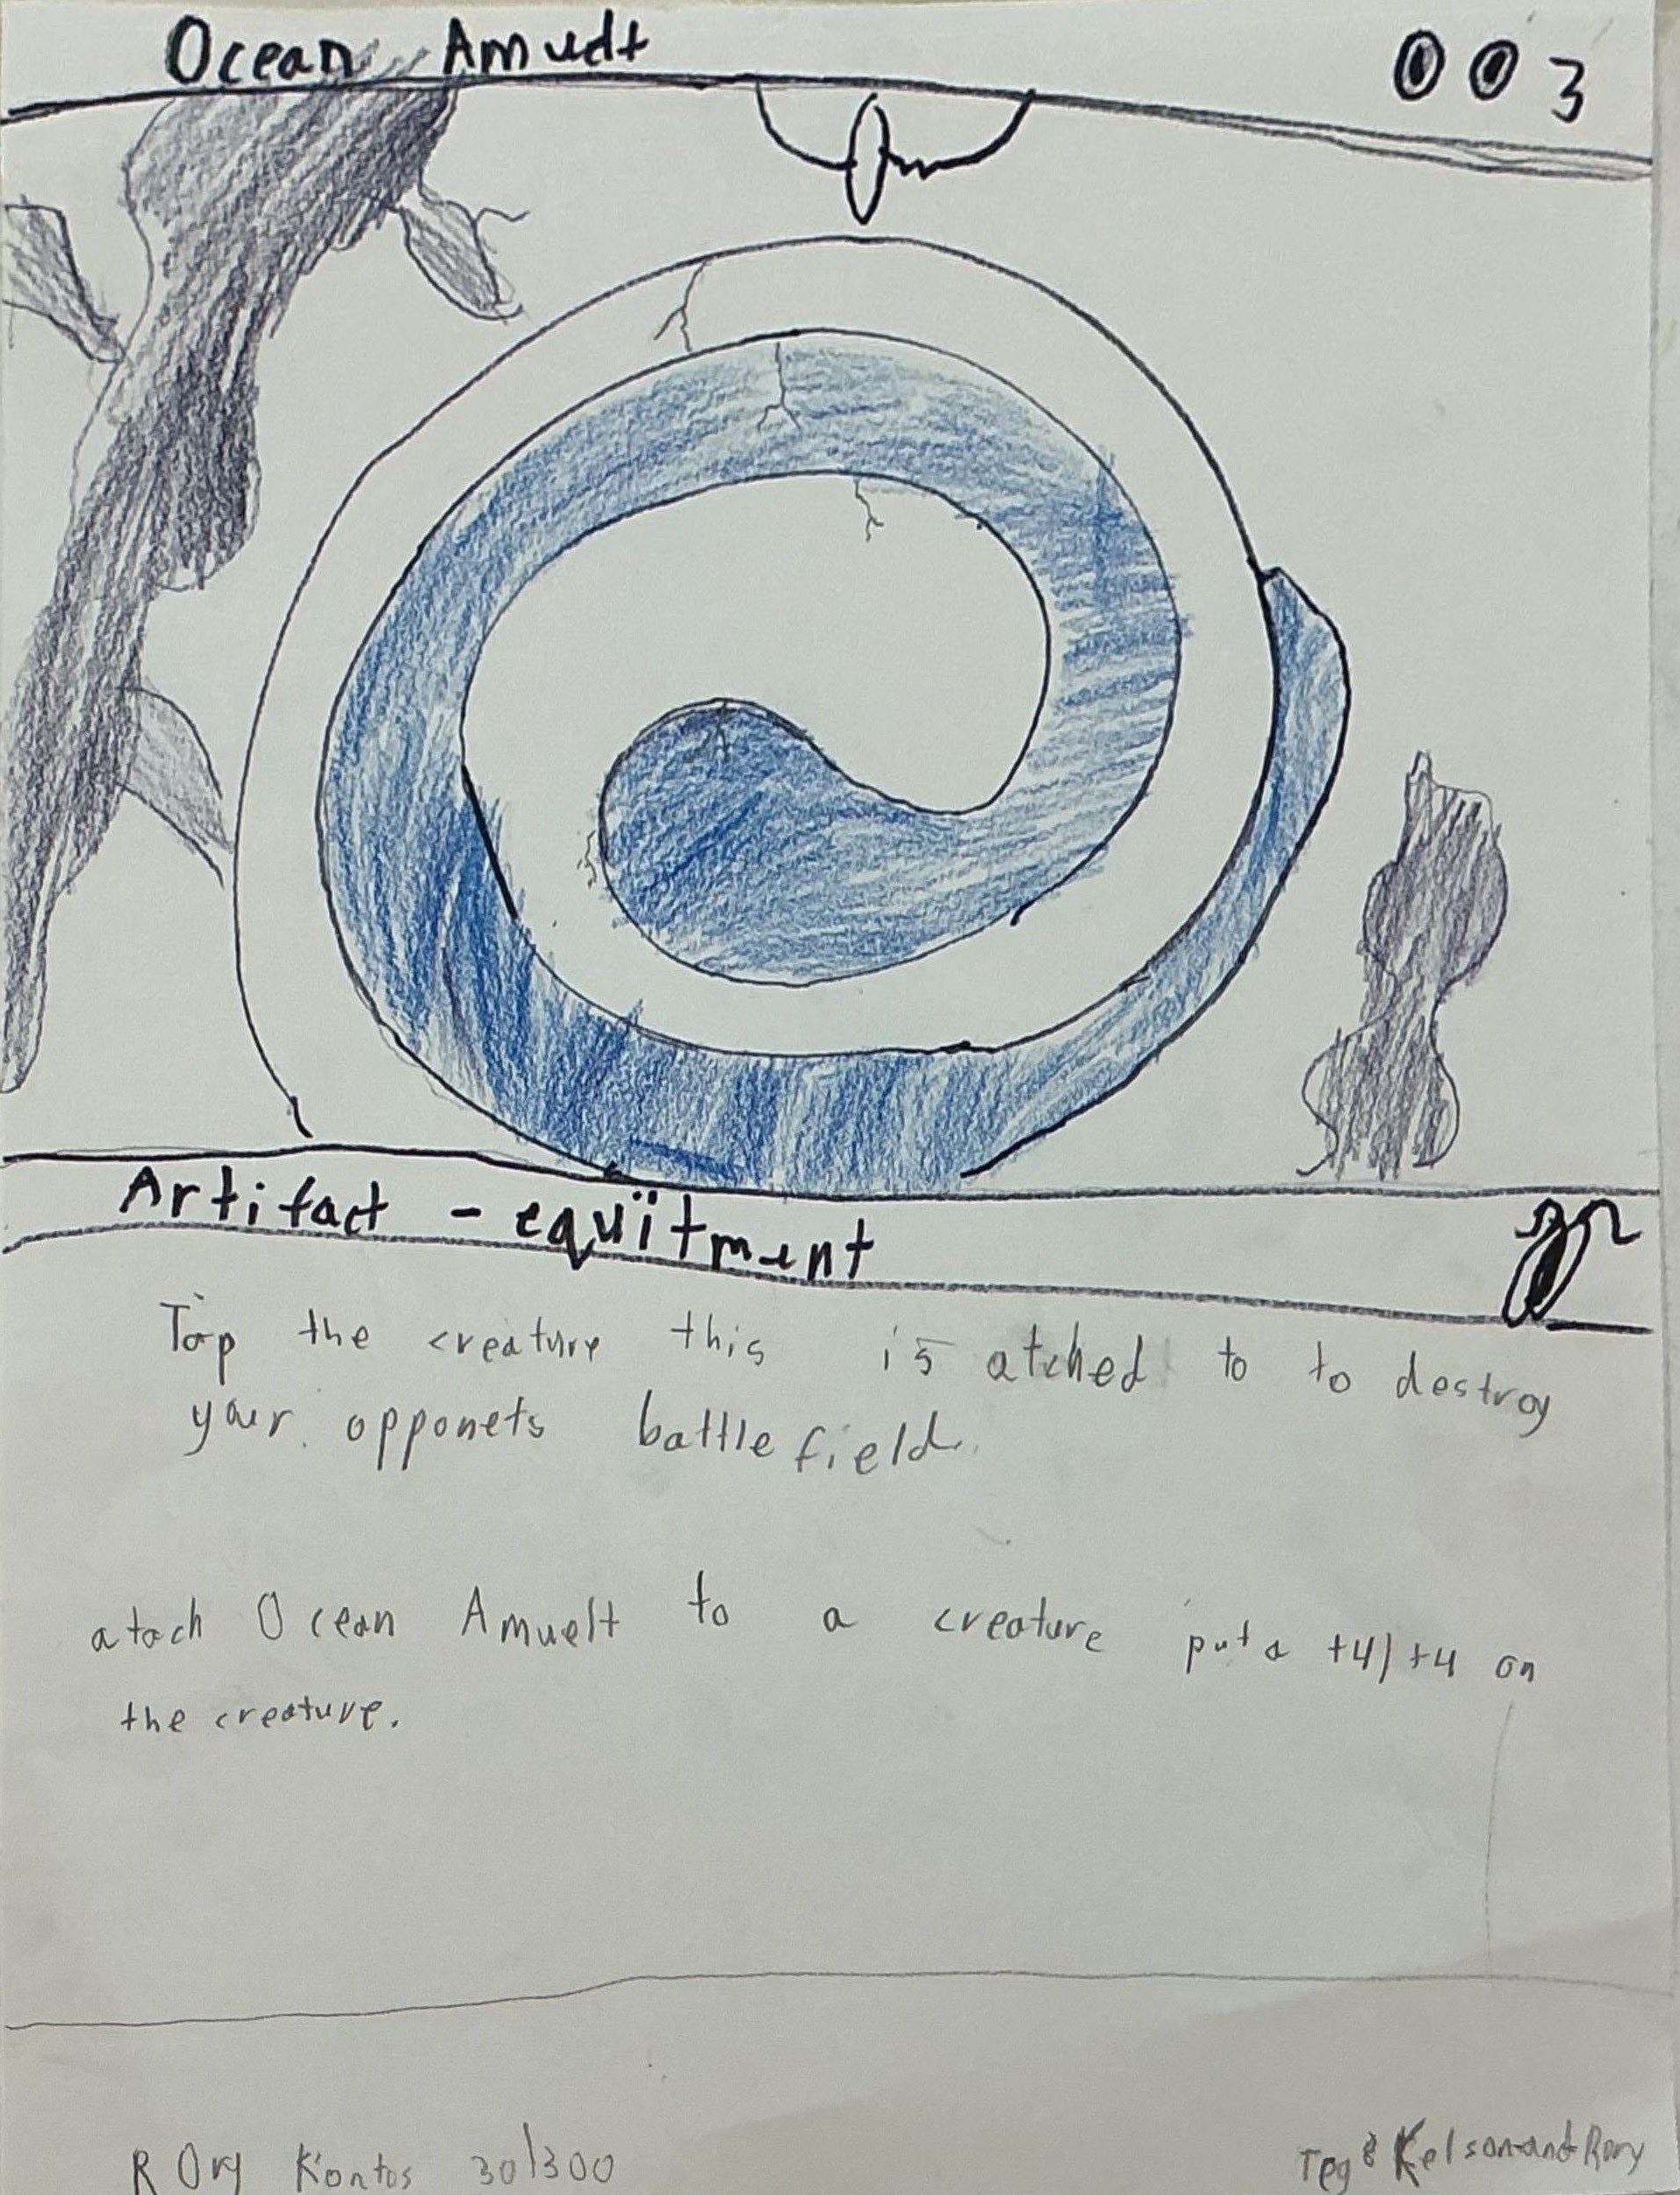 Ocean Amuelt 003
Artifact - equitment
Tap the creature this is atched to to destroy
your opponets battlefield.
atach Ocean Amuelt to a creature put a +4/+4 on
the creature.
ROry Kontos 30/300
Kelson and Rory